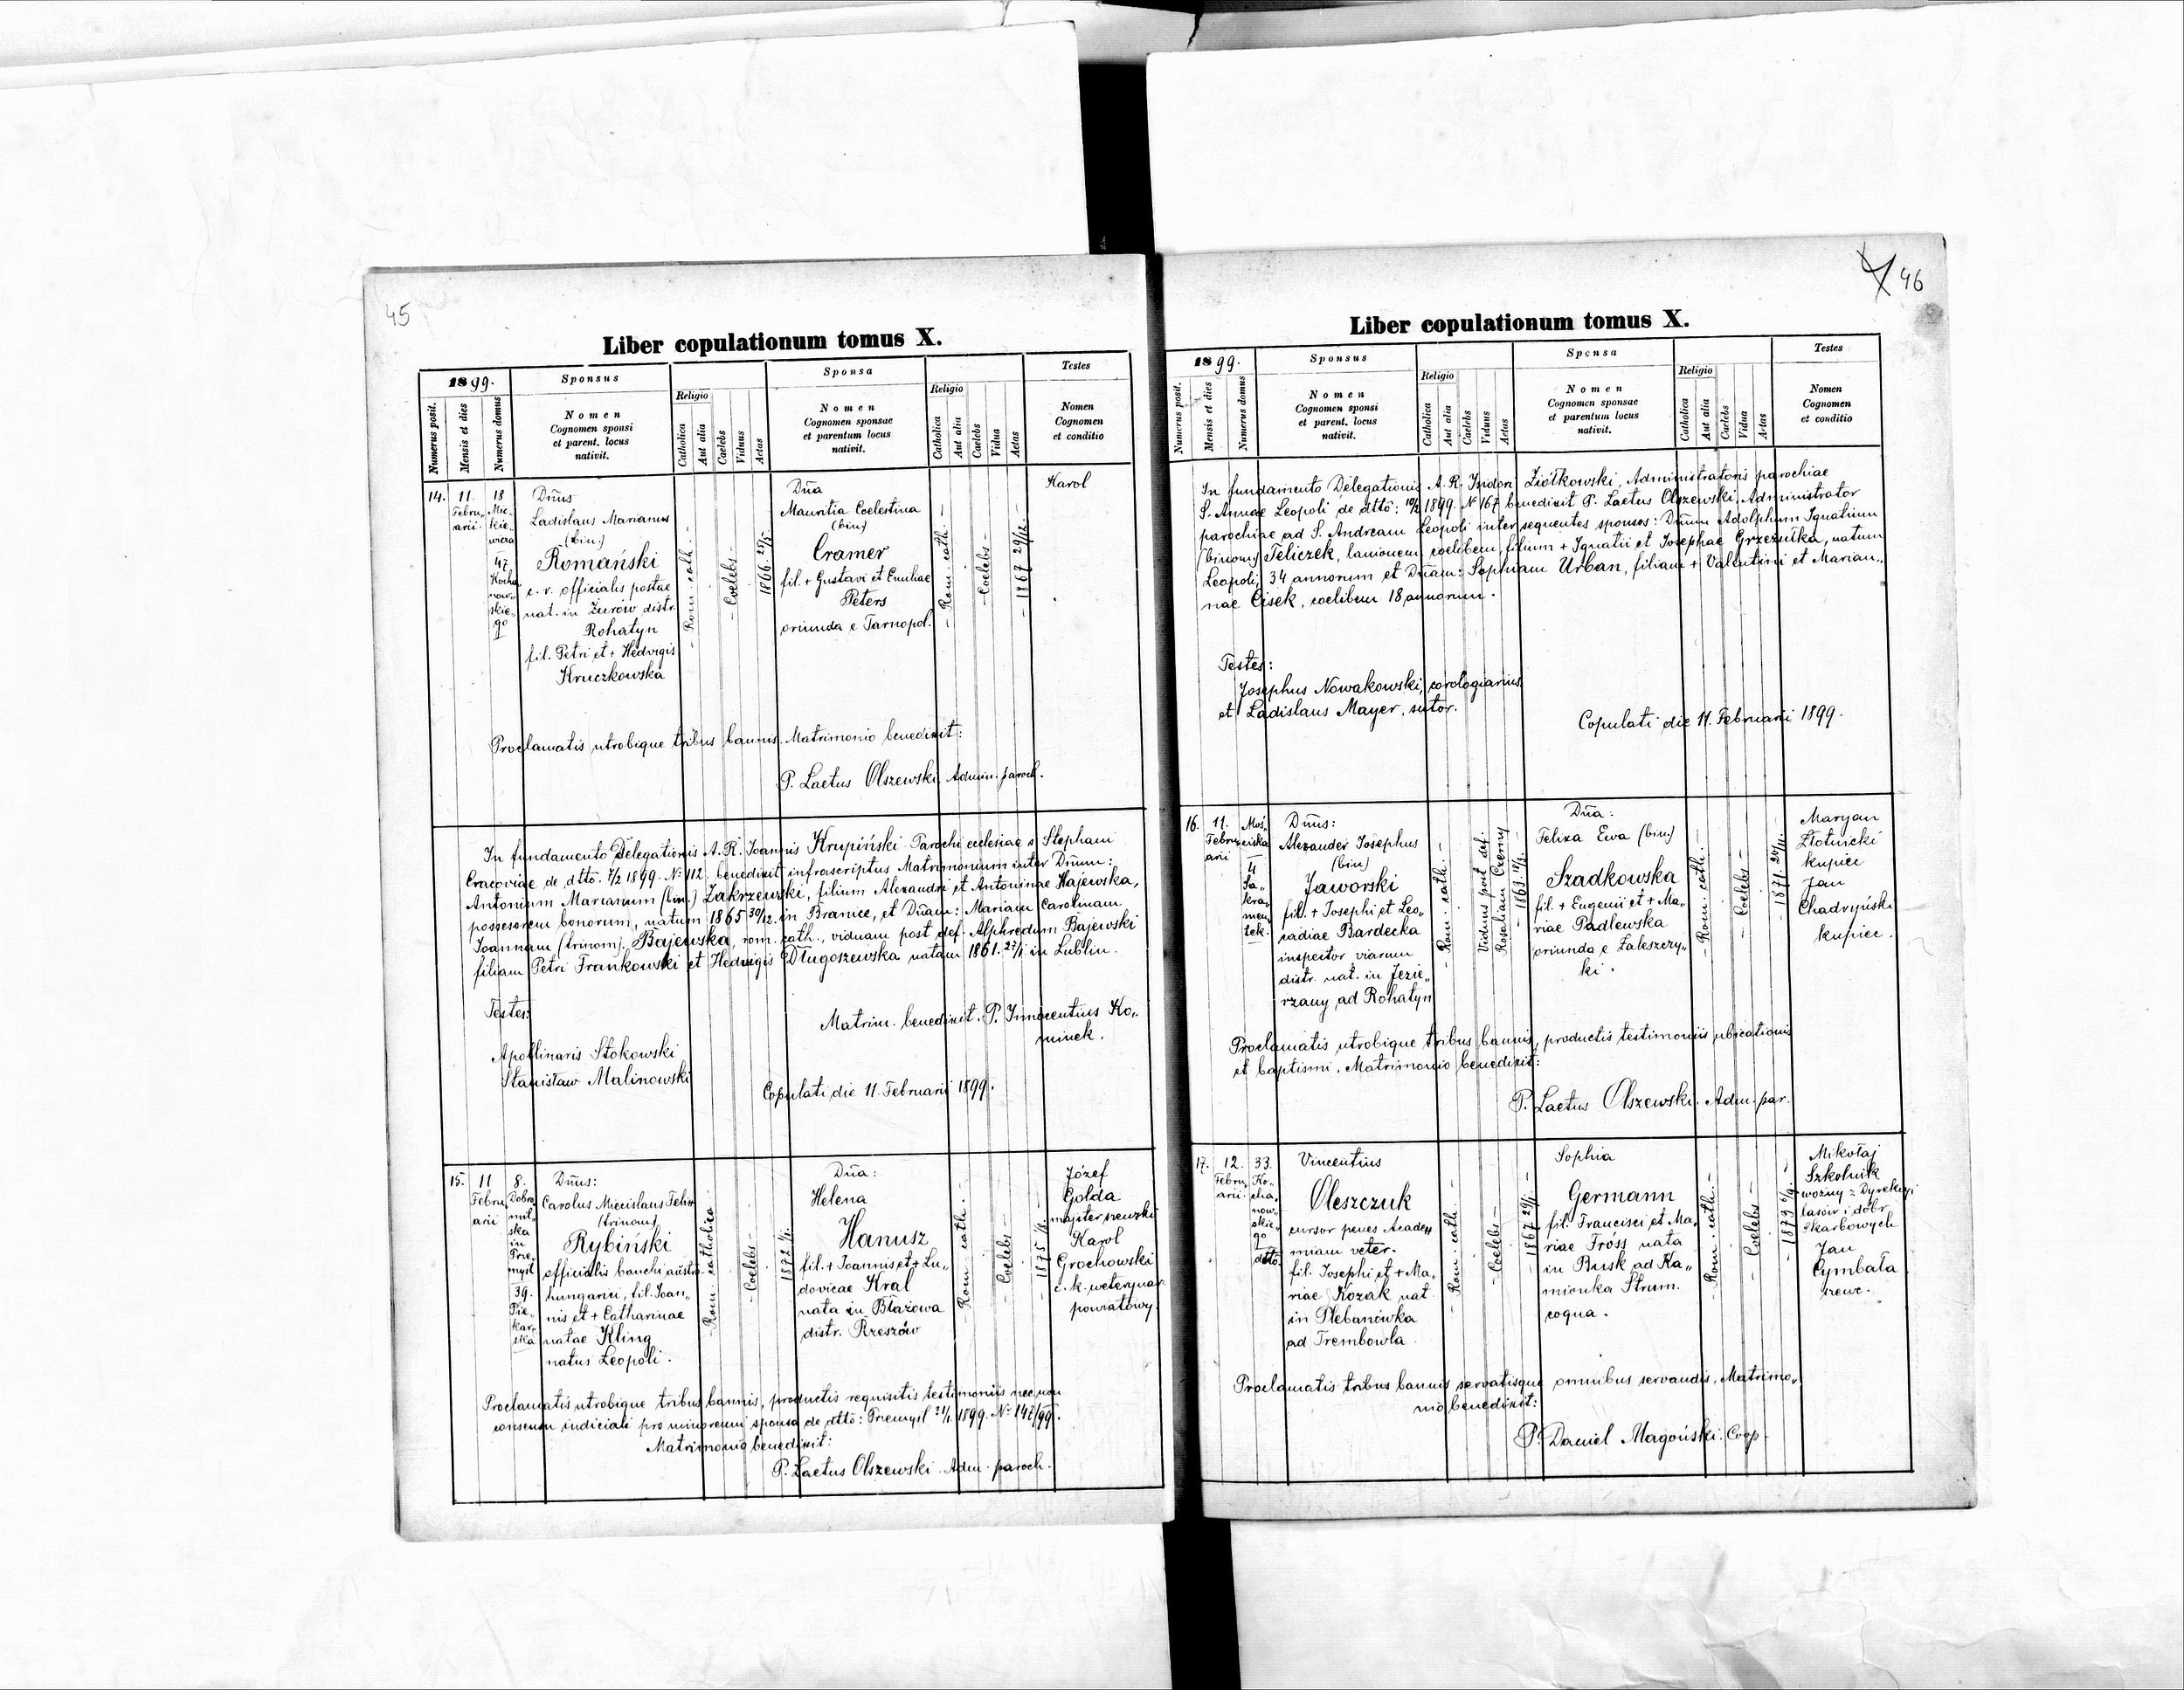 45
Liber copulationum tomus X.
1899.
Sponsus
Sponsa
Testes
Numerus posit.
Mensis et dies
Numerus domus
Nomen
Cognomen sponsi
et parent. locus
nativit.
Religio
Catholica
Aut alia
Caelebs
Viduus
Aetas
Nomen
Cognomen sponsae
et parentum locus
nativit.
Religio
Catholica
Aut alia
Caelebs
Vidua
Aetas
Nomen
Cognomen
et conditio
14.
11.
Febru„
arii
18
Mic„
kie„
wicza
47
Kocha„
now„
skie„
go
Dn̄us
Ladislaus Marianus
(bin:)
Romański
c. r. officialis postae
nat. in Żurów distr.
Rohatyn
fil. Petri et + Hedvigis
Kruczkowska
- Rom. cath. -
- Coelebs -
1866. 27/5.
Dn̄a
Mauritia Coelestina
(bin)
Cramer
fil. + Gustavi et Emiliae
Peters
oriunda e Tarnopol.
- Rom. cath. -
- Coelebs -
- 1867 29/12. -
Karol
Proclamatis utrobique tribus bannis. Matrimonio benedixit:
P. Laetus Olszewski. Admin. paroch.
In fundamento Delegationis A. R. Joannis Krupiński Parochi ecclesiae s Stephani
Cracoviae de dtto. 7/2 1899. № 112. benedixit infrascriptus Matrimonium inter Dn̄um:
Antonium Marianum (bin.) Zakrzewski, filium Alexandri et Antoninae Hajewska,
possesorem bonorum, natum 1865 30/12. in Branice, et Dn̄am: Mariam Carolinam
Joannam (trinom). Bajewska, rom. cath., viduam post def. Alphredum Bajewski
filiam Petri Frankowski et Hedvigis Długoszewska natam 1861. 27/1. in Lublin.
Testes:
Apollinaris Stokowski
Stanisław Malinowski
Matrim. benedixit. P. Innocentius Ko„
minek.
Copulati die 11. Februarii 1899.
15.
11
Febru
arii
8.
Dobro„
mil„
ska
in
Prze„
myśl
39.
Pie„
kar„
ska
Dn̄us:
Carolus Miecislaus Felix
(trinom)
Rybiński
officialis banchi austro
hungarici, fil. Joan„
nis et + Catharinae
natae Kling
natus Leopoli.
- Rom. catholica -
- Coelebs -
Dn̄a:
Helena
Hanusz
fil. + Joannis et + Lu„
dovicae Kral
nata in Błażowa
distr. Rzeszów
- Rom. cath. -
- Coelebs -
Józef
Golda
majster szewski
Karol
Grochowski
c. k. weterynar.
powiatowy
Proclamatis utrobique tribus bannis, productis requisitis testimoniis nec non
consensu iudiciali pro minorenni sponsa de dtto: Przemyśl 21/1. 1899. № 147/99.
Matrimonio benedixit:
P. Laetus Olszewski. Adm. paroch.
46
Liber copulationum tomus X.
1899.
Sponsus
Sponsa
Testes
Numerus posit.
Mensis et dies
Numerus domus
Nomen
Cognomen sponsi
et parent. locus
nativit.
Religio
Catholica
Aut alia
Caelebs
Viduus
Aetas
Nomen
Cognomen sponsae
et parentum locus
nativit.
Religio
Catholica
Aut alia
Caelebs
Vidua
Aetas
Nomen
Cognomen
et conditio
In fundamento Delegationis A. R. Isidori Ziółkowski, Administratoris parochiae
S. Annae Leopoli de dtto: 10/2 1899. № 167 benedixit P. Laetus Olszewski. Administrator
parochiae ad S. Andream Leopoli inter sequentes sponsos: Dn̄um Adolphum Ignatium
(binom) Teliczek, lanionem, coelibem, filium + Ignatii et Josephae Grzezułka, natum
Leopoli, 34 annorum et Dn̄am: Sophiam Urban, filiam + Valentini et Marian„
nae Cisek, coelibem 18 annorum.
Testes:
Josephus Nowakowski, horologiarius
et Ladislaus Mayer, sutor.
Copulati die 11. Februarii 1899.
16.
11.
Febru
arii
Moś„
ciska
4
Sa„
kra„
men„
tek.
Dn̄us:
Alexander Josephus
(bin)
Jaworski
fil. + Josephi et Leo„
cadiae Bardecka
inspector viarum
distr. nat. in Jezie„
rzany ad Rohatyn
- Rom. cath. -
Viduus post def.
Rosaliam Czerny
Dn̄a:
Felixa Ewa (bin)
Szadkowska
fil. + Eugenii et + Ma„
riae Padlewska
oriunda e Zaleszczy„
ki.
- Rom. cath. -
- Coelebs -
Maryan
Złotnicki
kupiec
Jan
Chadryński
kupiec.
Proclamatis utrobique tribus bannis, productis testimoniis ubicationis
et baptismi. Matrimonio benedixit:
P. Laetus Olszewski. Adm. par.
17.
12.
Febru„
arii
33.
Ko„
cha„
now„
skie„
go
dtto.
Vincentius
Oleszczuk
cursor penes Acade„
miam veter.
fil. Josephi et + Ma„
riae Kozak nat.
in Plebanówka
ad Trembowla
- Rom. cath. -
- Coelebs -
- 1867 29/1. -
Sophia
Germann
fil. Francisci et Ma„
riae Fróss nata
in Busk ad Ka„
mionka Strum.
coqua.
- Rom. cath. -
- Coelebs -
Mikołaj
Szkolnik
woźny z Dyrekcyi
lasów i dóbr
skarbowych
Jan
Cymbała
szewc.
Proclamatis tribus bannis servatisque omnibus servandis. Matrimo„
nio benedixit:
P. Daniel Magoński. Coop.